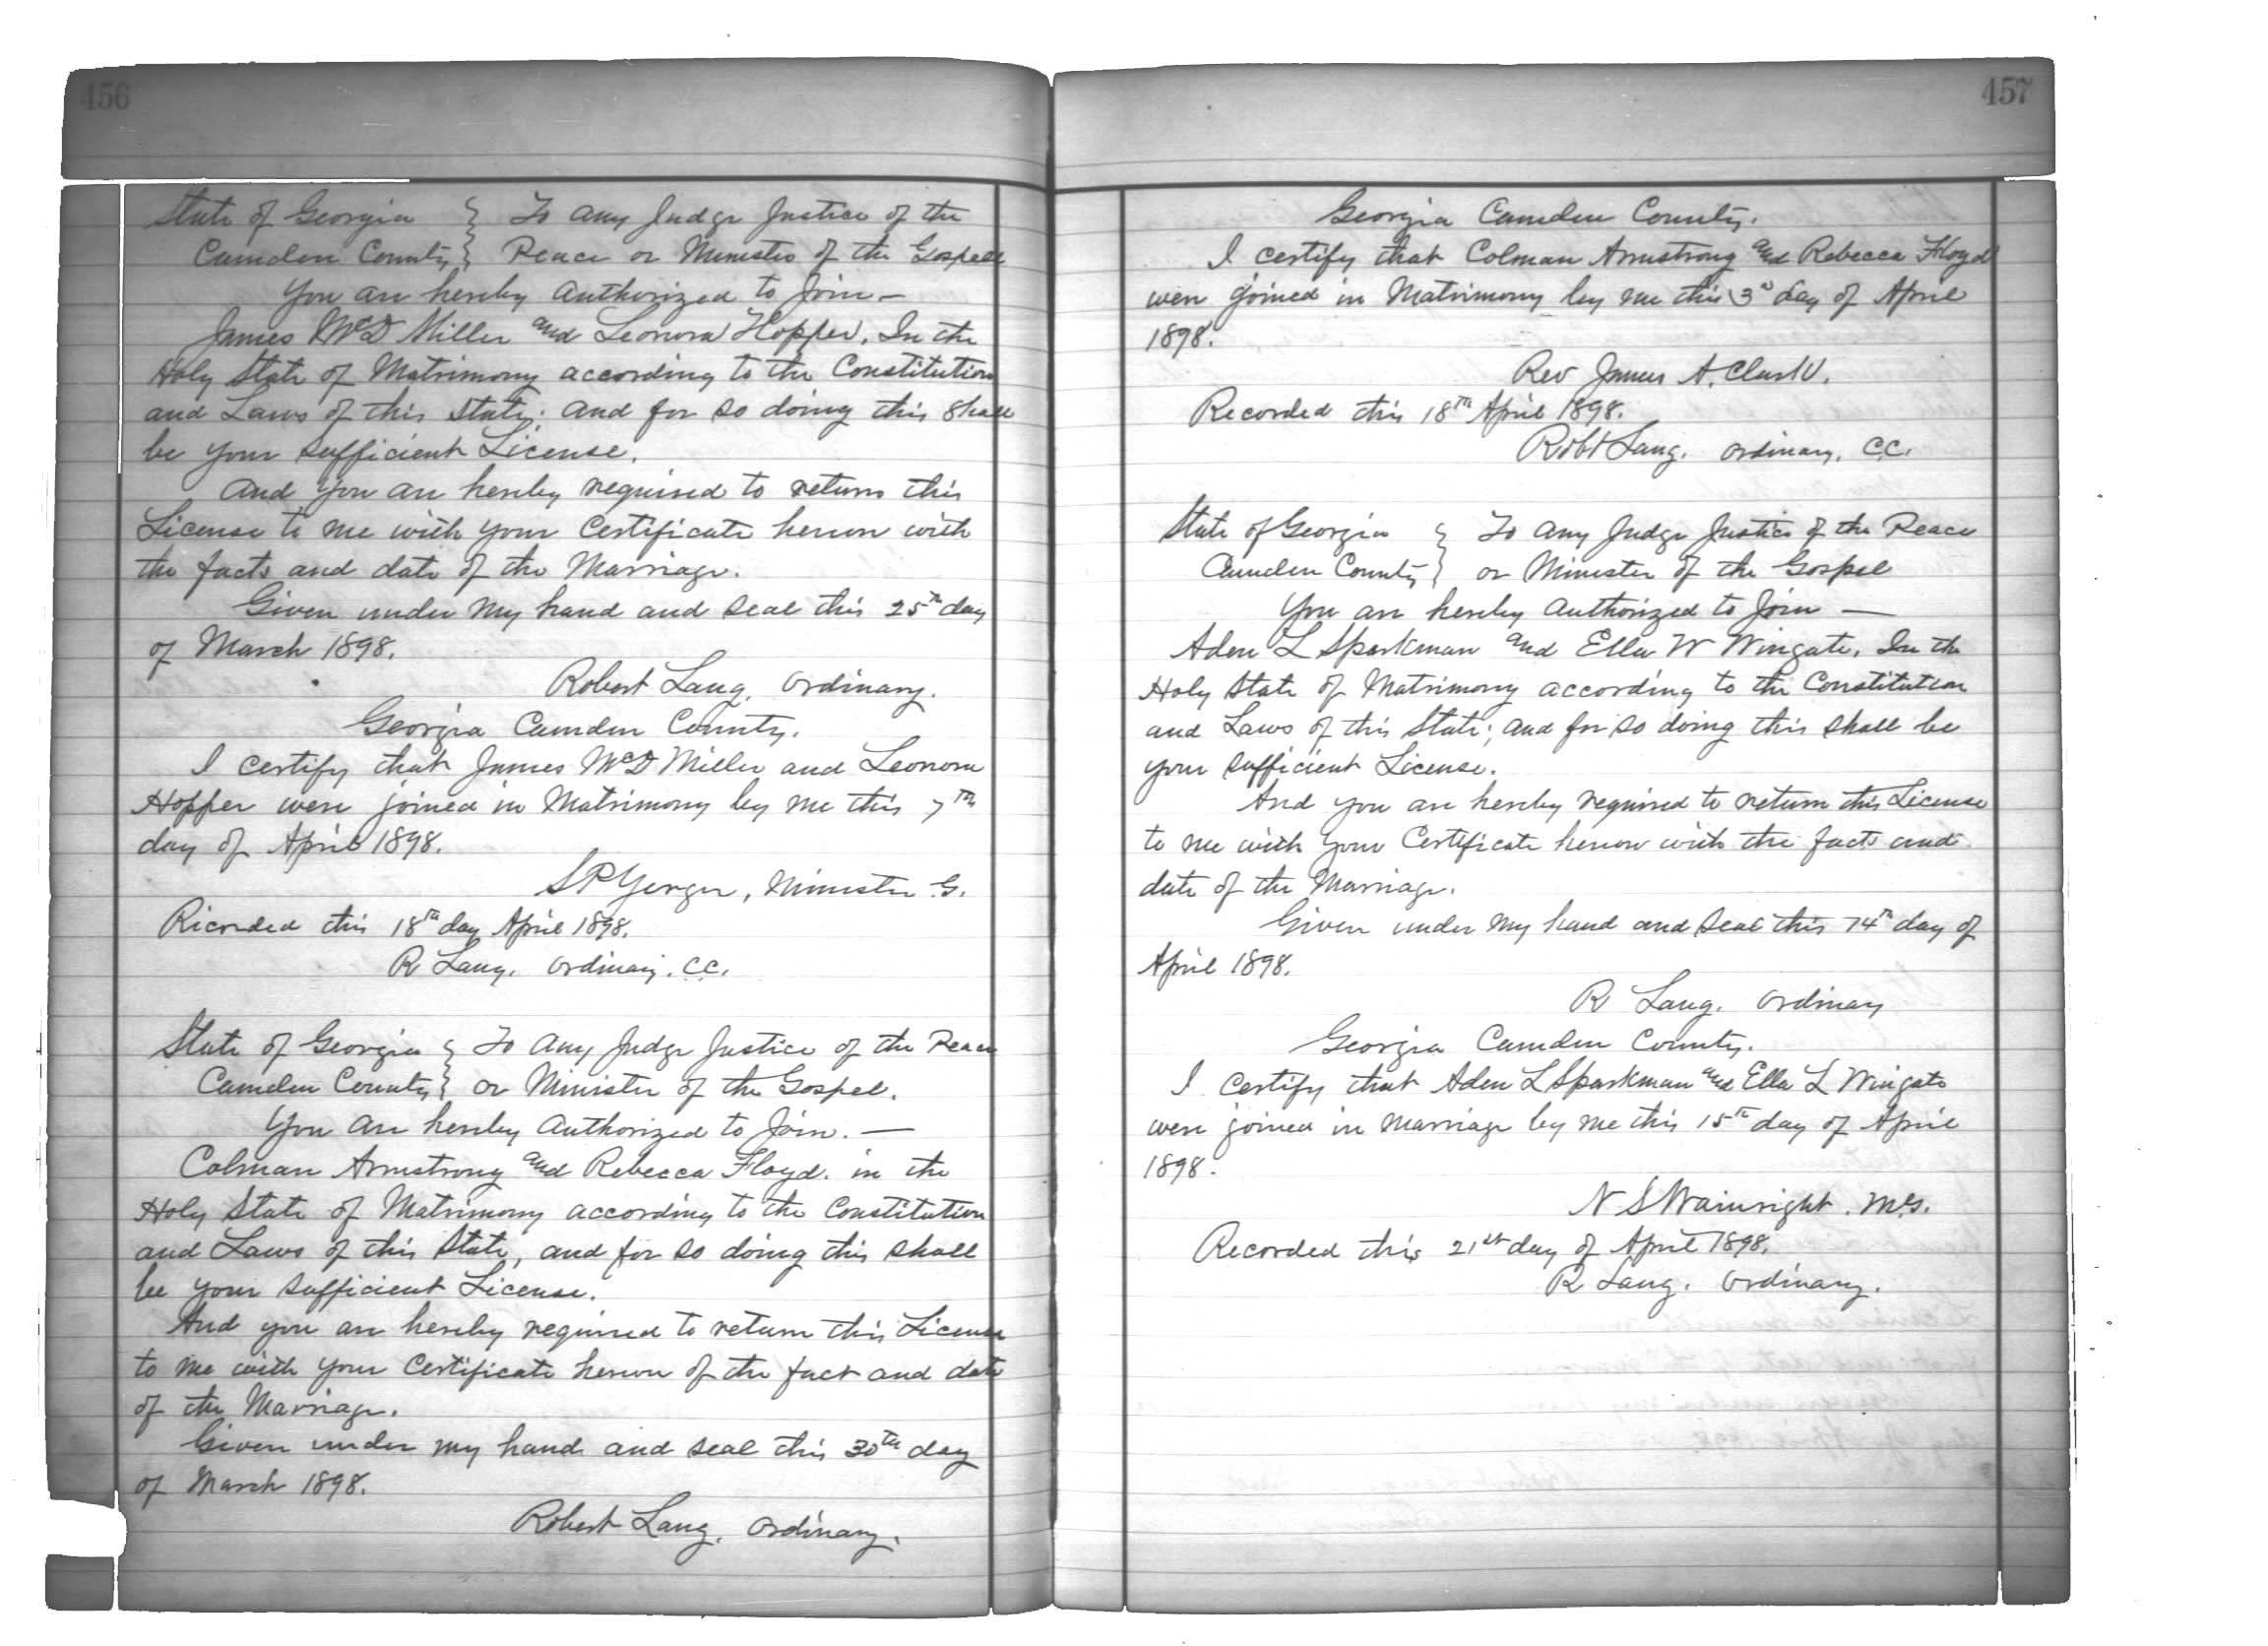 456
State of Georgia } To any Judge Justice of the
Camden County } Peace or Minister of the Gospel
You are hereby authorized to Join —
James McD Miller and Leonora Hopper, In the
Holy State of Matrimony according to the Constitution
and Laws of this State; and for so doing this shall
be your sufficient License.
And you are hereby required to return this
License to me with your Certificate hereon with
the facts and date of the Marriage.
Given under my hand and seal this 25th day
of March 1898.
Robert Lang, Ordinary.
Georgia Camden County.
I certify that James McD Miller and Leonora
Hopper were joined in Matrimony by me this 7th
day of April 1898.
S P Yerger, Minister G.
Recorded this 18th day April 1898.
R Lang. Ordinary. C.C.
State of Georgia } To any Judge Justice of the Peace
Camden County } or Minister of the Gospel.
You are hereby authorized to Join. —
Colman Armstrong and Rebecca Floyd. in the
Holy State of Matrimony according to the Constitution
and Laws of this State, and for so doing this shall
be your sufficient License.
And you are hereby required to return this License
to me with your Certificate hereon of the fact and date
of the Marriage.
Given under my hand and seal this 30th day
of March 1898.
Robert Lang, Ordinary.
457
Georgia Camden County.
I certify that Colman Armstrong and Rebecca Floyd
were joined in Matrimony by me this 3d day of April
1898.
Rev James A. Clark
Recorded this 18th April 1898.
Robt Lang. Ordinary. C.C.
State of Georgia } To any Judge Justice of the Peace
Camden County } or Minister of the Gospel
You are hereby authorized to Join —
Aden L Sparkman and Ella W Wingate, In the
Holy State of Matrimony according to the Constitution
and Laws of this State; and for so doing this shall be
your sufficient License.
And you are hereby required to return this License
to me with your Certificate hereon with the facts and
date of the Marriage.
Given under my hand and seal this 14th day of
April 1898.
R Lang. Ordinary
Georgia Camden County.
I certify that Aden L Sparkman and Ella L Wingate
were joined in Marriage by me this 15th day of April
1898.
N S Wainright. M.G.
Recorded this 21st day of April 1898.
R Lang. Ordinary.